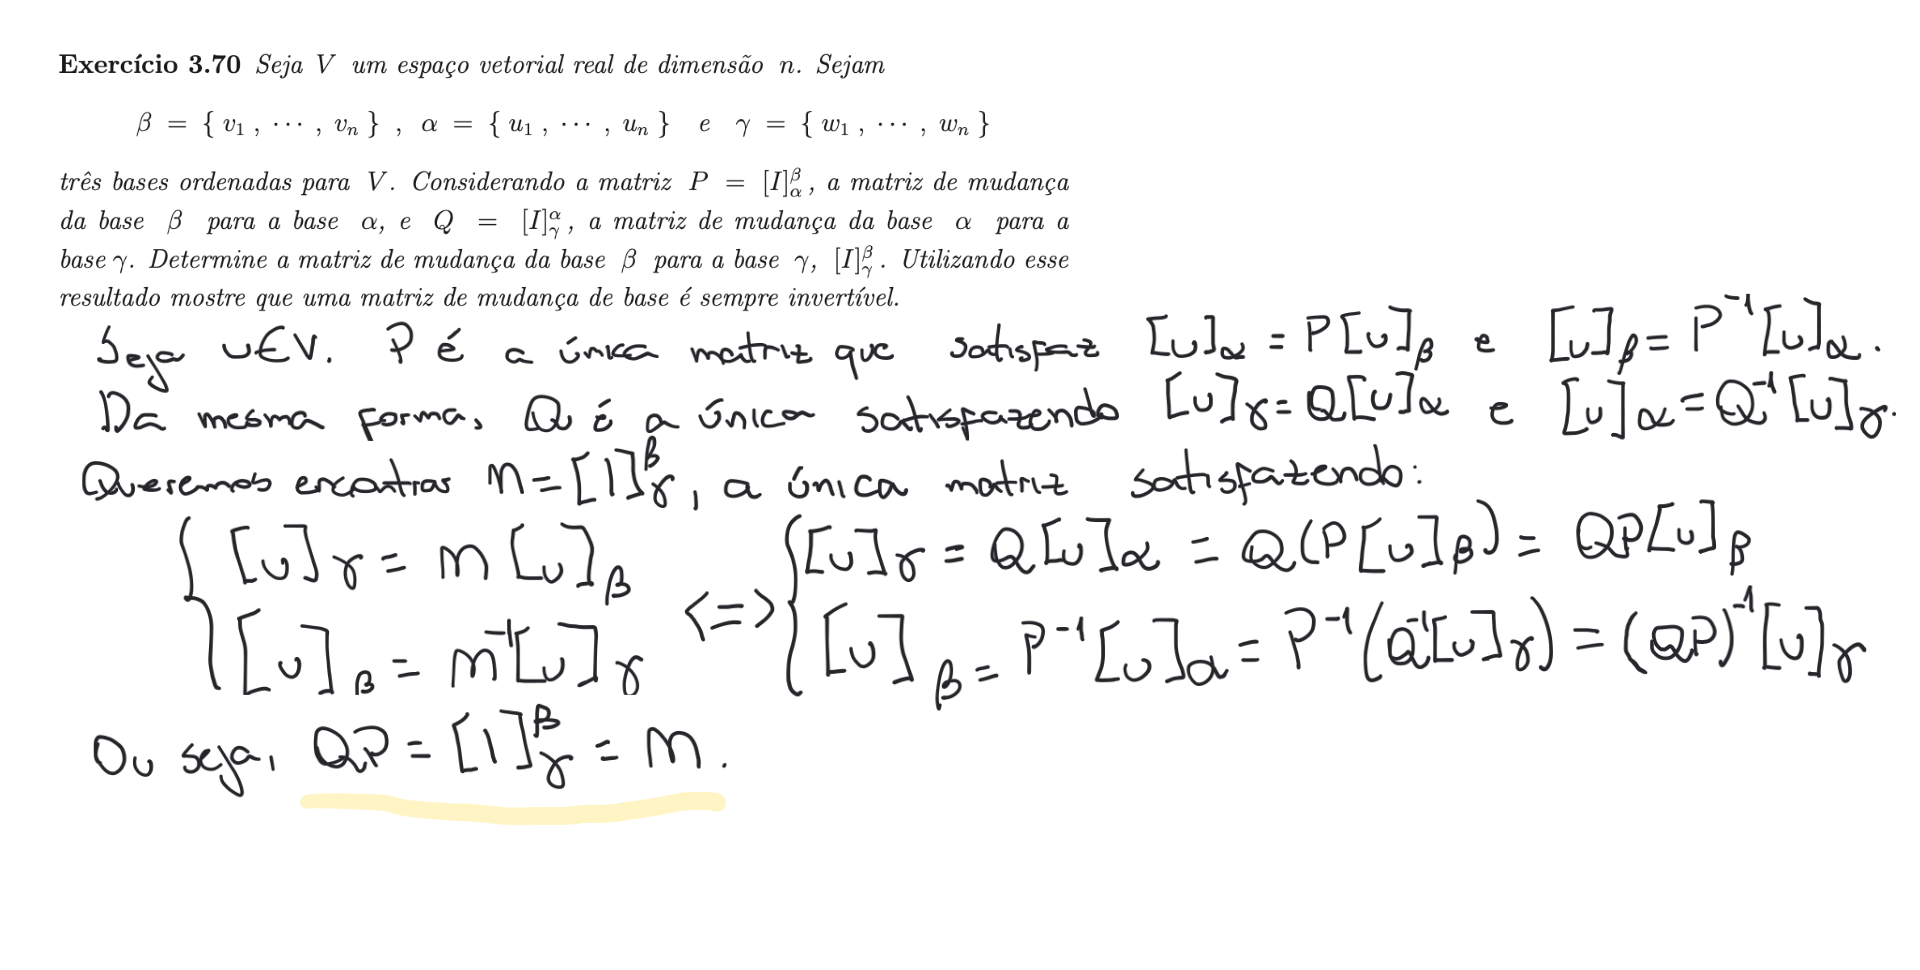 Exercício 3.70 Seja V um espaço vetorial real de dimensão n. Sejam
β = { v₁ , ··· , vₙ } , α = { u₁ , ··· , uₙ } e γ = { w₁ , ··· , wₙ }
três bases ordenadas para V. Considerando a matriz P = [I]^β_α , a matriz de mudança
da base β para a base α, e Q = [I]^α_γ , a matriz de mudança da base α para a
base γ. Determine a matriz de mudança da base β para a base γ, [I]^β_γ . Utilizando esse
resultado mostre que uma matriz de mudança de base é sempre invertível.
Seja u∈V. P é a única matriz que satisfaz [u]_α = P[u]_β e [u]_β = P⁻¹[u]_α.
Da mesma forma, Q é a única satisfazendo [u]_γ = Q[u]_α e [u]_α = Q⁻¹[u]_γ.
Queremos encontrar M = [I]^β_γ, a única matriz satisfazendo:
{ [u]_γ = M[u]_β <=> { [u]_γ = Q[u]_α = Q(P[u]_β) = QP[u]_β
[u]_β = M⁻¹[u]_γ [u]_β = P⁻¹[u]_α = P⁻¹(Q⁻¹[u]_γ) = (QP)⁻¹[u]_γ
Ou seja, QP = [I]^β_γ = M.